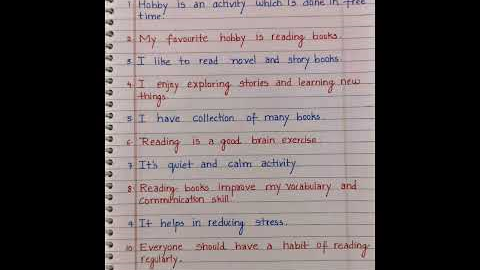 1. Hobby is an activity which is done in free
time.
2. My favourite hobby is reading books.
3. I like to read novel and story books.
4. I enjoy exploring stories and learning new
things.
5. I have collection of many books.
6. Reading is a good brain exercise.
7. It's quiet and calm activity.
8. Reading books improve my vocabulary and
communication skill.
9. It helps in reducing stress.
10. Everyone should have a habit of reading
regularly.